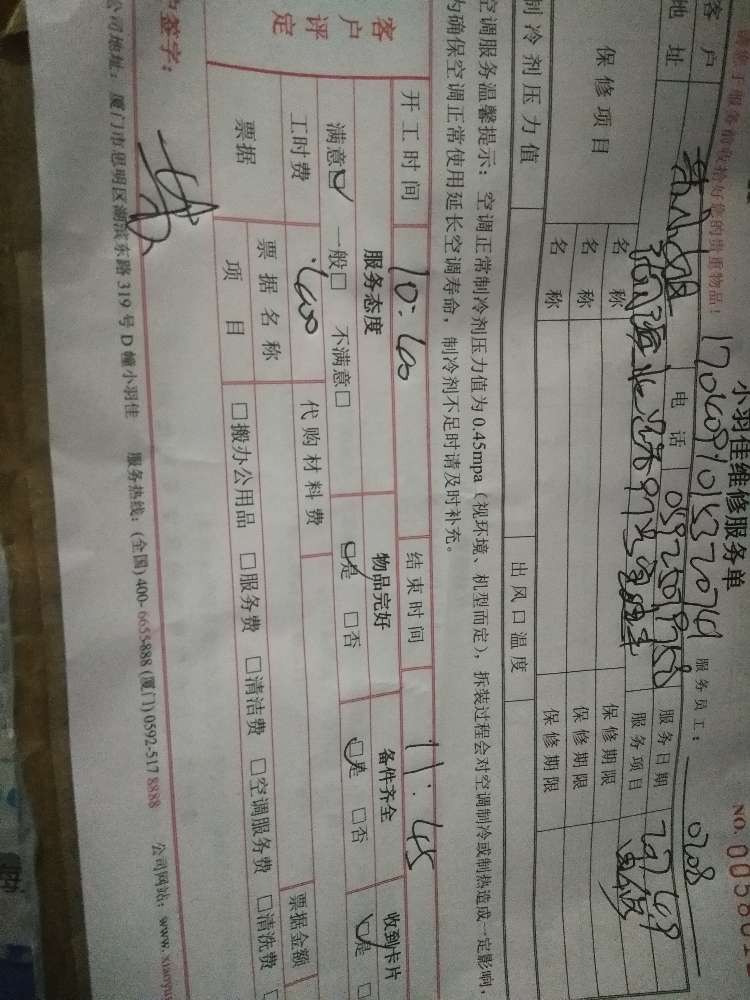 请您于服务前收拾好您的贵重物品！
小羽佳维修服务单
NO. 00580
服务员工： 0208
客户 电话 服务日期
地址 服务项目
保修项目
名称 保修期限
名称 保修期限
名称 保修期限
制冷剂压力值 出风口温度
空调服务温馨提示：空调正常制冷剂压力值为0.45mpa（视环境、机型而定），拆装过程会对空调制冷或制热造成一定影响，
为确保空调正常使用延长空调寿命，制冷剂不足时请及时补充。
开工时间 10:00 结束时间 11:45
客户评定
服务态度 物品完好 备件齐全 收到卡片
满意☑ 一般□ 不满意□ ☑是 □否 ☑是 □否 ☑是 □
工时费 代购材料费
票据 票据名称 票据金额
项目 □搬办公用品 □服务费 □清洁费 □空调服务费 □清洗费
签字：
公司地址：厦门市思明区湖滨东路319号D幢小羽佳 服务热线：(全国)400-6655-888 (厦门)0592-517 8888 公司网站：www.xiaoyu